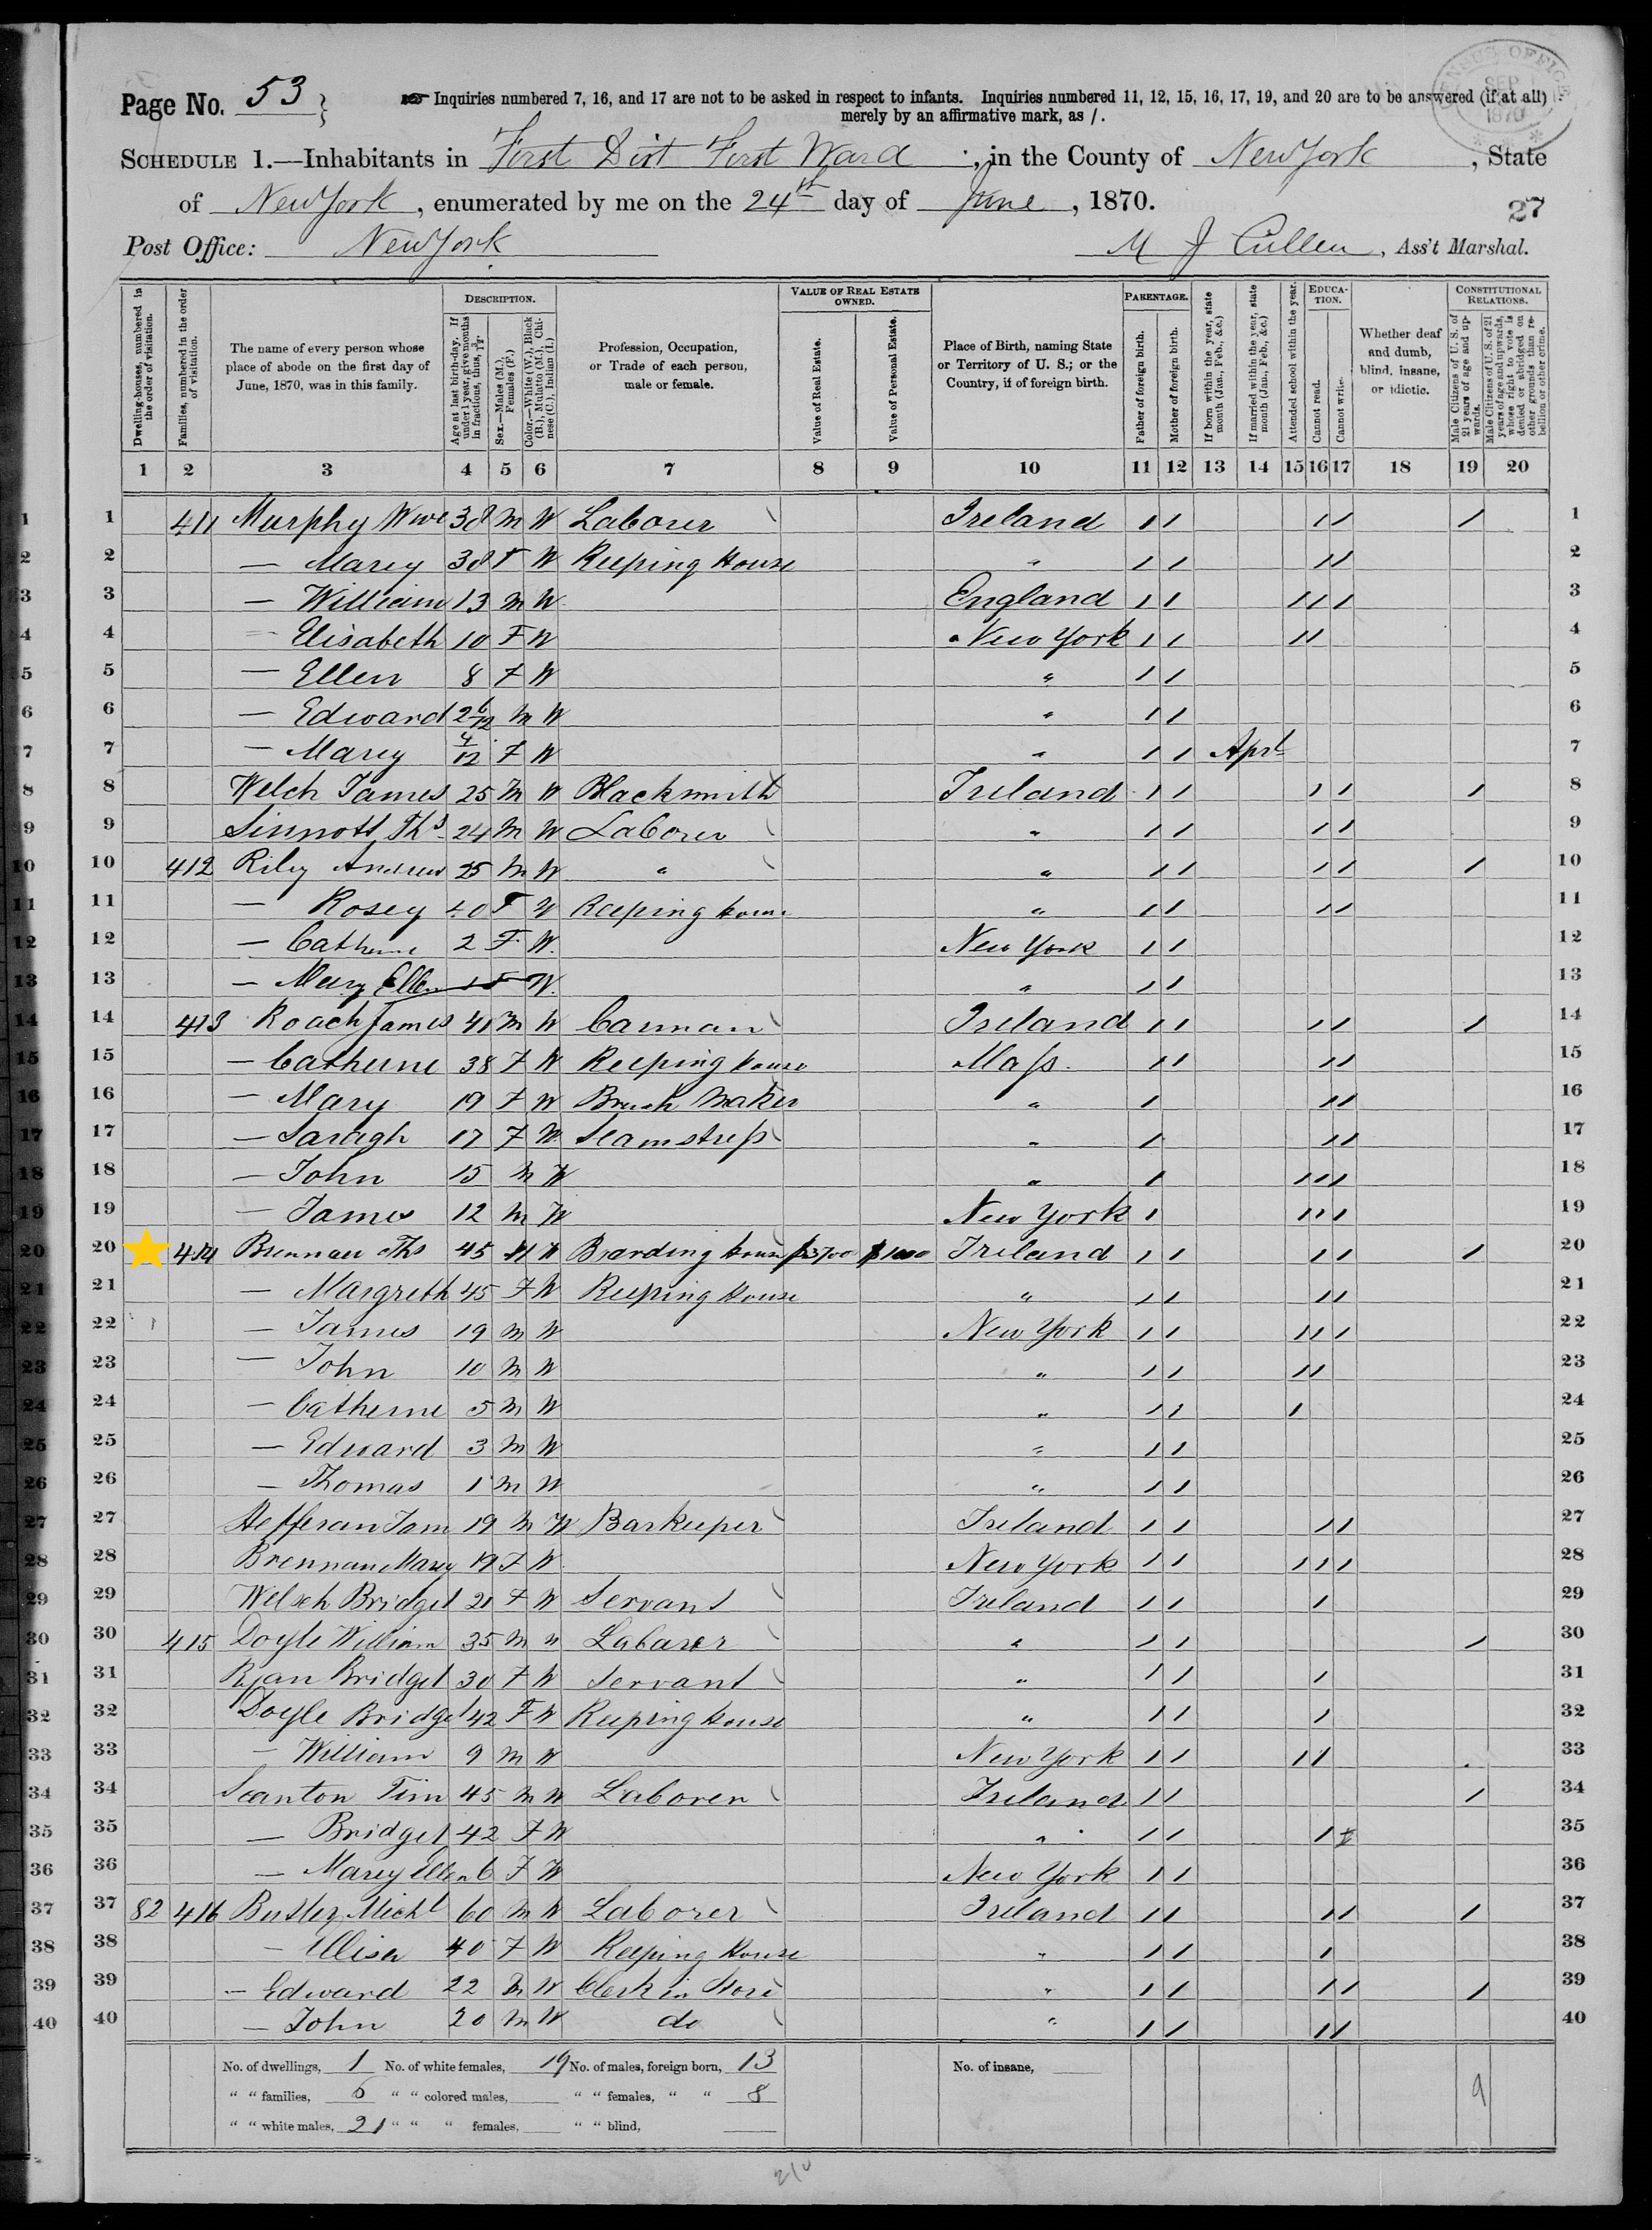 Page No. 53
☞ Inquiries numbered 7, 16, and 17 are not to be asked in respect to infants. Inquiries numbered 11, 12, 15, 16, 17, 19, and 20 are to be answered (if at all)
merely by an affirmative mark, as /.
CENSUS OFFICE
SEP
1870
SCHEDULE 1.—Inhabitants in First Dist First Ward, in the County of New York, State
of New York, enumerated by me on the 24th day of June, 1870.
27
Post Office: New York
M J Cullen, Ass't Marshal.
Dwelling-houses, numbered in the order of visitation.
Families, numbered in the order of visitation.
The name of every person whose place of abode on the first day of June, 1870, was in this family.
DESCRIPTION.
Age at last birth-day. If under 1 year, give months in fractions, thus, 3/12.
Sex.—Males (M.), Females (F.)
Color.—White (W.), Black (B.), Mulatto (M.), Chinese (C.), Indian (I.)
Profession, Occupation, or Trade of each person, male or female.
VALUE OF REAL ESTATE OWNED.
Value of Real Estate.
Value of Personal Estate.
Place of Birth, naming State or Territory of U. S.; or the Country, if of foreign birth.
PARENTAGE.
Father of foreign birth.
Mother of foreign birth.
If born within the year, state month (Jan., Feb., &c.)
If married within the year, state month (Jan., Feb., &c.)
Attended school within the year.
EDUCATION.
Cannot read.
Cannot write.
Whether deaf and dumb, blind, insane, or idiotic.
CONSTITUTIONAL RELATIONS.
Male Citizens of U. S. of 21 years of age and upwards.
Male Citizens of U. S. of 21 years of age and upwards, whose right to vote is denied or abridged on other grounds than rebellion or other crime.
1 2 3 4 5 6 7 8 9 10 11 12 13 14 15 16 17 18 19 20
1 411 Murphy Wm 38 M W Laborer Ireland / / / / / 1
2 — Marey 38 F W Keeping House " / / / / 2
3 — William 13 M W England / / / / / 3
4 — Elisabeth 10 F W New York / / / / 4
5 — Ellen 8 F W " / / 5
6 — Edward 2 6/12 M W " / / 6
7 — Marey 4/12 F W " / / Aprl 7
8 Welch James 25 M W Blacksmith Ireland / / / / / 8
9 Sinnott Ths 24 M W Laborer " / / / / 9
10 412 Rily Andrew 25 M W " " / / / / / 10
11 — Rosey 40 F W Keeping House " / / / / 11
12 — Catherine 2 F W. New York / / 12
13 — Mary Ellen 1 F W. " / / 13
14 413 Roach James 41 M W Carman Ireland / / / / / 14
15 — Catherine 38 F W Keeping House Mass. / / / / 15
16 — Mary 19 F W Brush Maker " / / / 16
17 — Saragh 17 F W Seamstress " / / / 17
18 — John 15 M W " / / / / 18
19 — James 12 M W New York / / / / 19
20 414 Brennan Ths 45 M W Boarding House $3700 $1000 Ireland / / / / / 20
21 — Margreth 45 F W Keeping House " / / / / 21
22 — James 19 M W New York / / / / / 22
23 — John 10 M W " / / / / 23
24 — Catherine 5 M W " / / / 24
25 — Edward 3 M W " / / 25
26 — Thomas 1 M W " / / 26
27 Hefferan Tom 19 M W Barkeeper Ireland / / / / 27
28 Brennan Marey 19 F W New York / / / / / 28
29 Welsch Bridget 21 F W Servant Ireland / / / 29
30 415 Doyle William 35 M W Laborer " / / / 30
31 Ryan Bridget 30 F W Servant " / / / 31
32 Doyle Bridget 42 F W Keeping House " / / / 32
33 — William 9 M W New York / / / / 33
34 Scanton Tim 45 M W Laborer Ireland / / / 34
35 — Bridget 42 F W " / / / 35
36 — Marey Ellen 6 F W New York / / 36
37 82 416 Butler Michl 60 M W Laborer Ireland / / / / / 37
38 — Ellisa 40 F W Keeping House " / / / 38
39 — Edward 22 M W Clerk in Store " / / / / / 39
40 — John 20 M W do " / / / / 40
No. of dwellings, 1 No. of white females, 19 No. of males, foreign born, 13 No. of insane,
" " families, 6 " " colored males, " " females, " " 8 9
" " white males, 21 " " " females, " " blind,